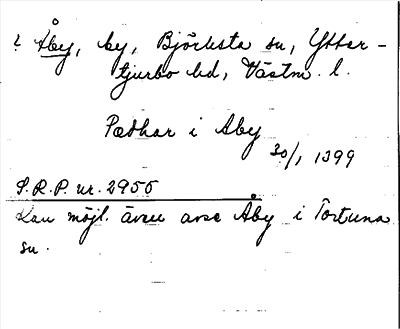 ? Åby, by, Björksta sn, Ytter-
tjurbo hd, Västm. l.
Pædhar i Aby
30/1 1399
S.R.P. nr. 2955
Kan möjl. även avse Åby i Tortuna
sn.